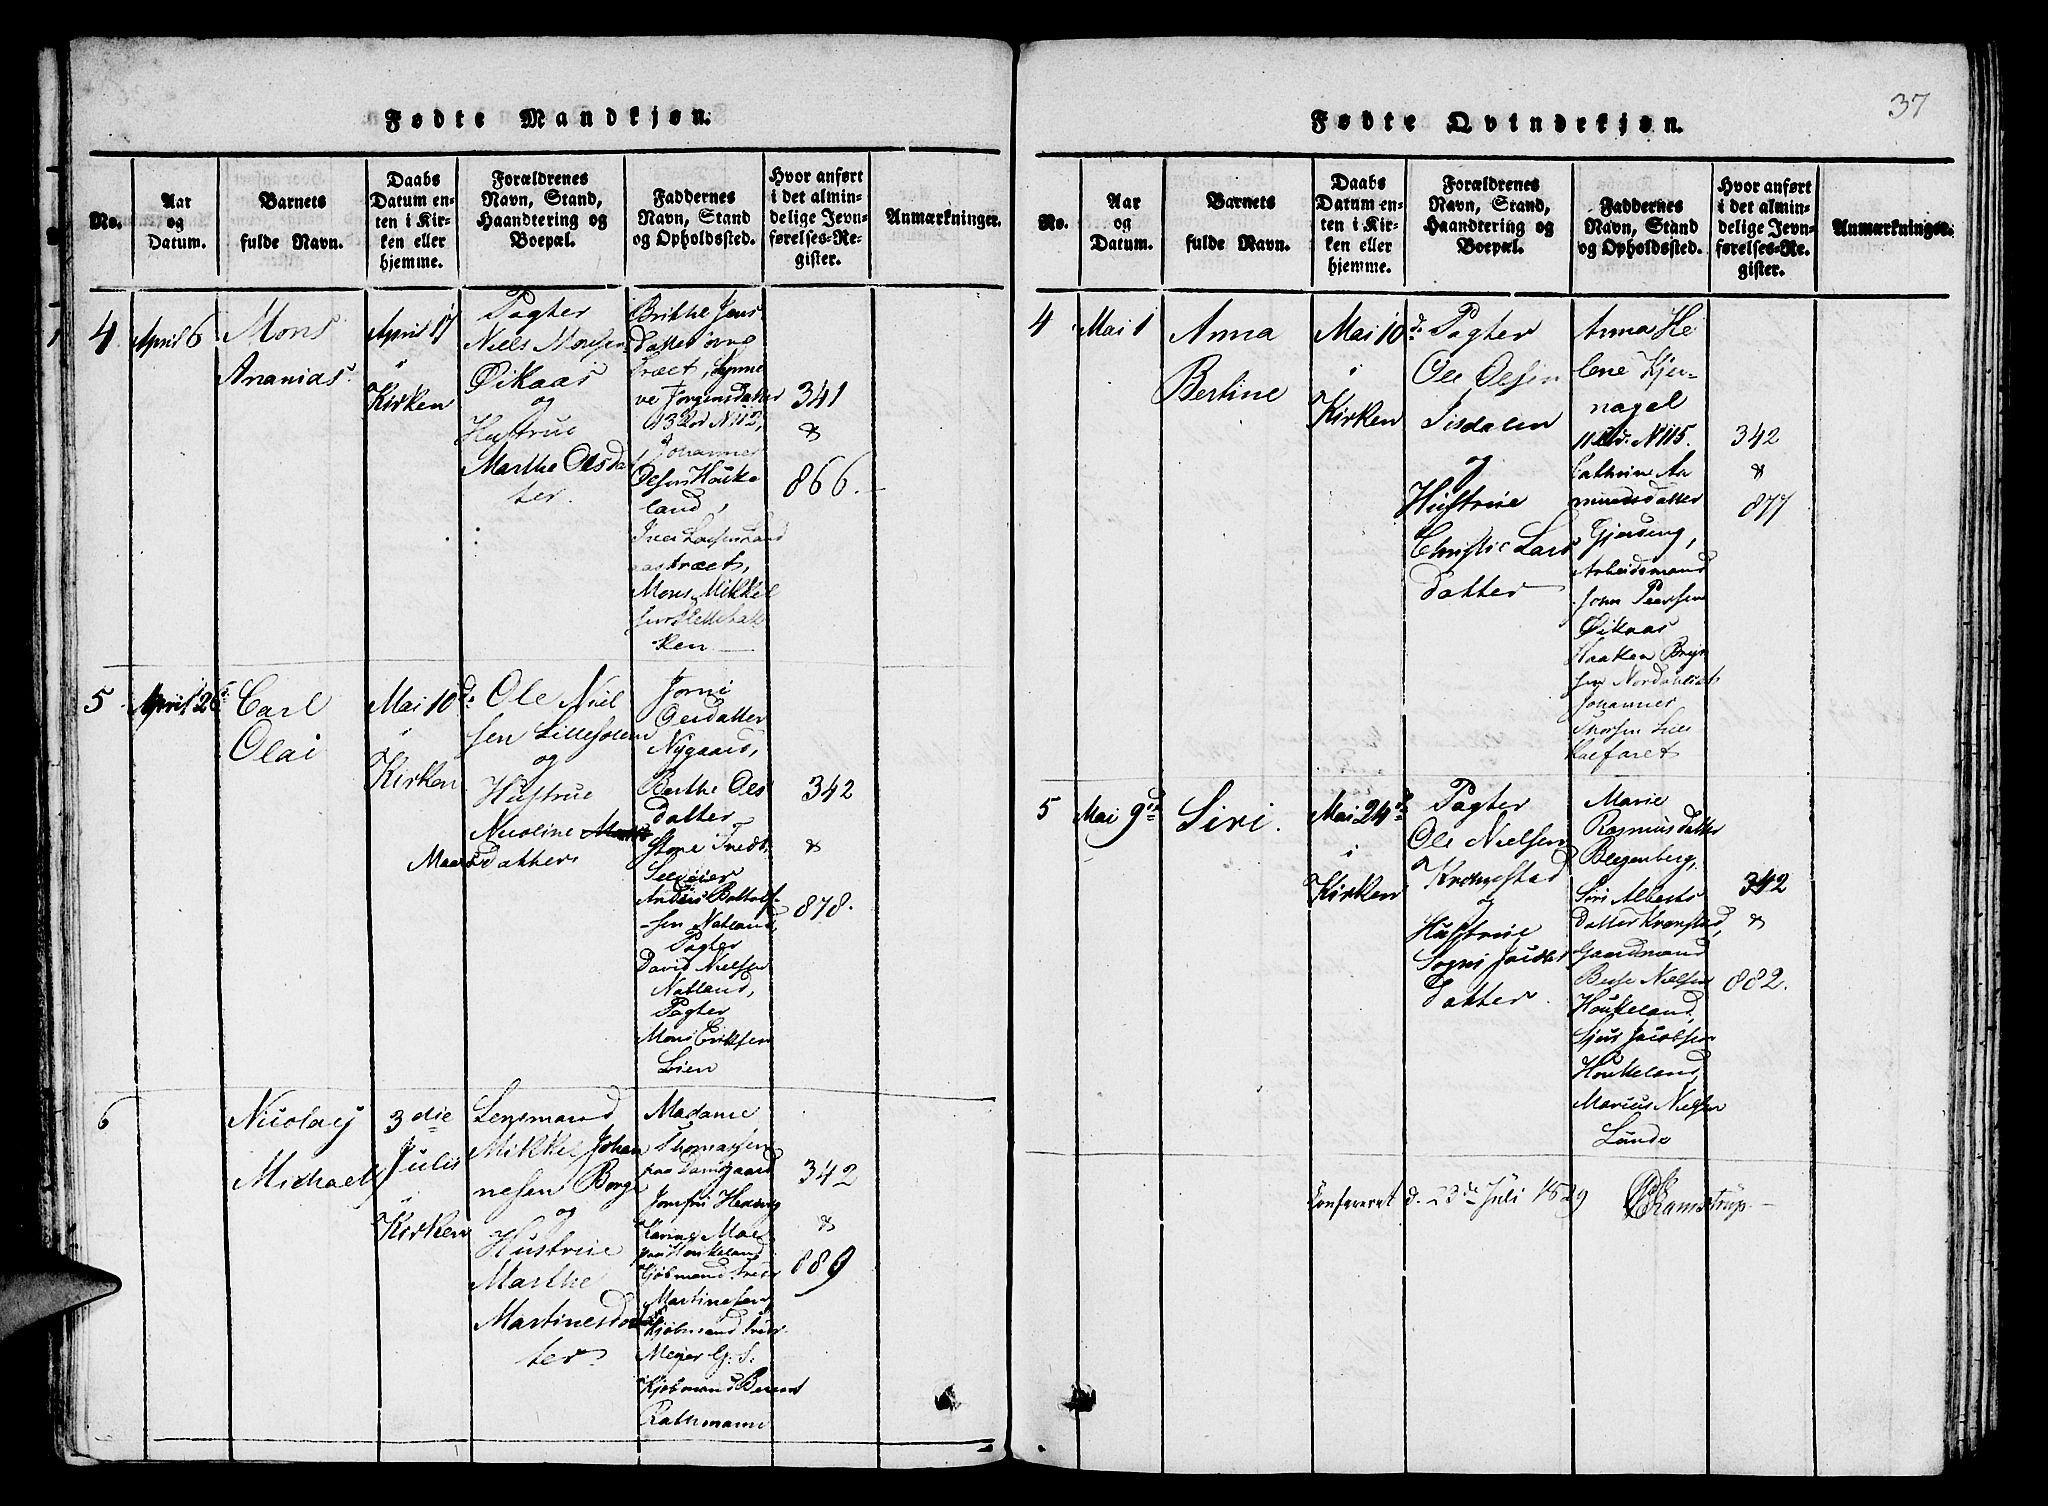 Fødte Mandkjøn.
No.
Aar
og
Datum.
Barnets
fulde Navn.
Daabs
Datum en-
ten i Kir-
ken eller
hjemme.
Forældrenes
Navn, Stand,
Haandtering og
Boepæl.
Faddernes
Navn, Stand
og Opholdssted.
Hvor anført
i det almin-
delige Jevn-
førelses-Re-
gister.
Anmærkninger.
4
April 6
Mons
Ananias.
April 17
i
Kirken
Pagter
Niels Monsen
Øikaas
og
Hustrue
Marthe Olsda
ter.
Brithe Jens
datter
ve Jørgensdatter
Johannes
Olsen Houke
land,
Mons Mikkel
sen Slettebak
ken
341
&
866.
5
April 26
Carl
Olai
Mai 10d.
i
Kirken
Ole Niel
sen Lillesolem
og
Hustrue
Nicoline
Madsdatter
Olesdatter
Nygaard,
Berthe Oles
datter
Anders Bottolf
sen Natland,
Pagter
David Nielsen
Natland,
Pagter
Mons Eriksen
Løien
342
&
878.
6
Nicolay
Michael
3die
Julii
i
Kirken
Lensmand
Mikkel Johan
nesen Borge
og
Hustrue
Marthe
Martinesdat
ter.
Madame
Thomassen
paa Damsgaard
Jomfru Hedevig
Karine
paa Houkeland
Kjøbmand
Martinesen,
Kjøbmand
Meyer G. S.
Kjøbmand Berent
Rathmann
342
&
889
Fødte Qvindekjøn.
37
No.
Aar
og
Datum.
Barnets
fulde Navn.
Daabs
Datum en-
ten i Kir-
ken eller
hjemme.
Forældrenes
Navn, Stand,
Haandtering og
Boepæl.
Faddernes
Navn, Stand
og Opholdssted.
Hvor anført
i det almin-
delige Jevn-
førelses-Re-
gister.
Anmærkninger.
4
Mai 1
Anna
Bertine
Mai 10d.
i
Kirken
Pagter
Ole Olsen
Sisdalen
og
Hustrue
Christie Lars
datter
Anna He
lene Kjer-
nagel
Cathrine Aa
mundsdatter
Arbeidsmand
John Peersen
Øikaas
Haaken Bryn
Johannes
Kalfaret
342
&
877
5
Mai 9de
Siri.
Mai 24de
i
Kirken
Pagter
Ole Nielsen
Kronestad
og
Hustrue
datter.
Marie
Rasmusdatter
Blegenberg,
Siri Alberts
datter Kronstad,
Gaardmand
Nielsen
Houkeland,
Sjur Jacobsen
Houkeland,
Marcus Nielsen
Lunde
342
&
882.
Confereret d. 23de Juli 1829
Ramstrup